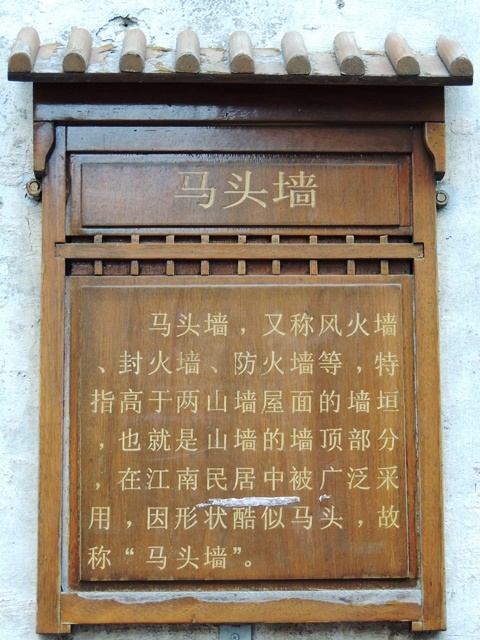 马头墙
马头墙，又称风火墙
、封火墙、防火墙等，特
指高于两山墙屋面的墙垣
，也就是山墙的墙顶部分
，在江南民居中被广泛采
用，因形状酷似马头，故
称“马头墙”。